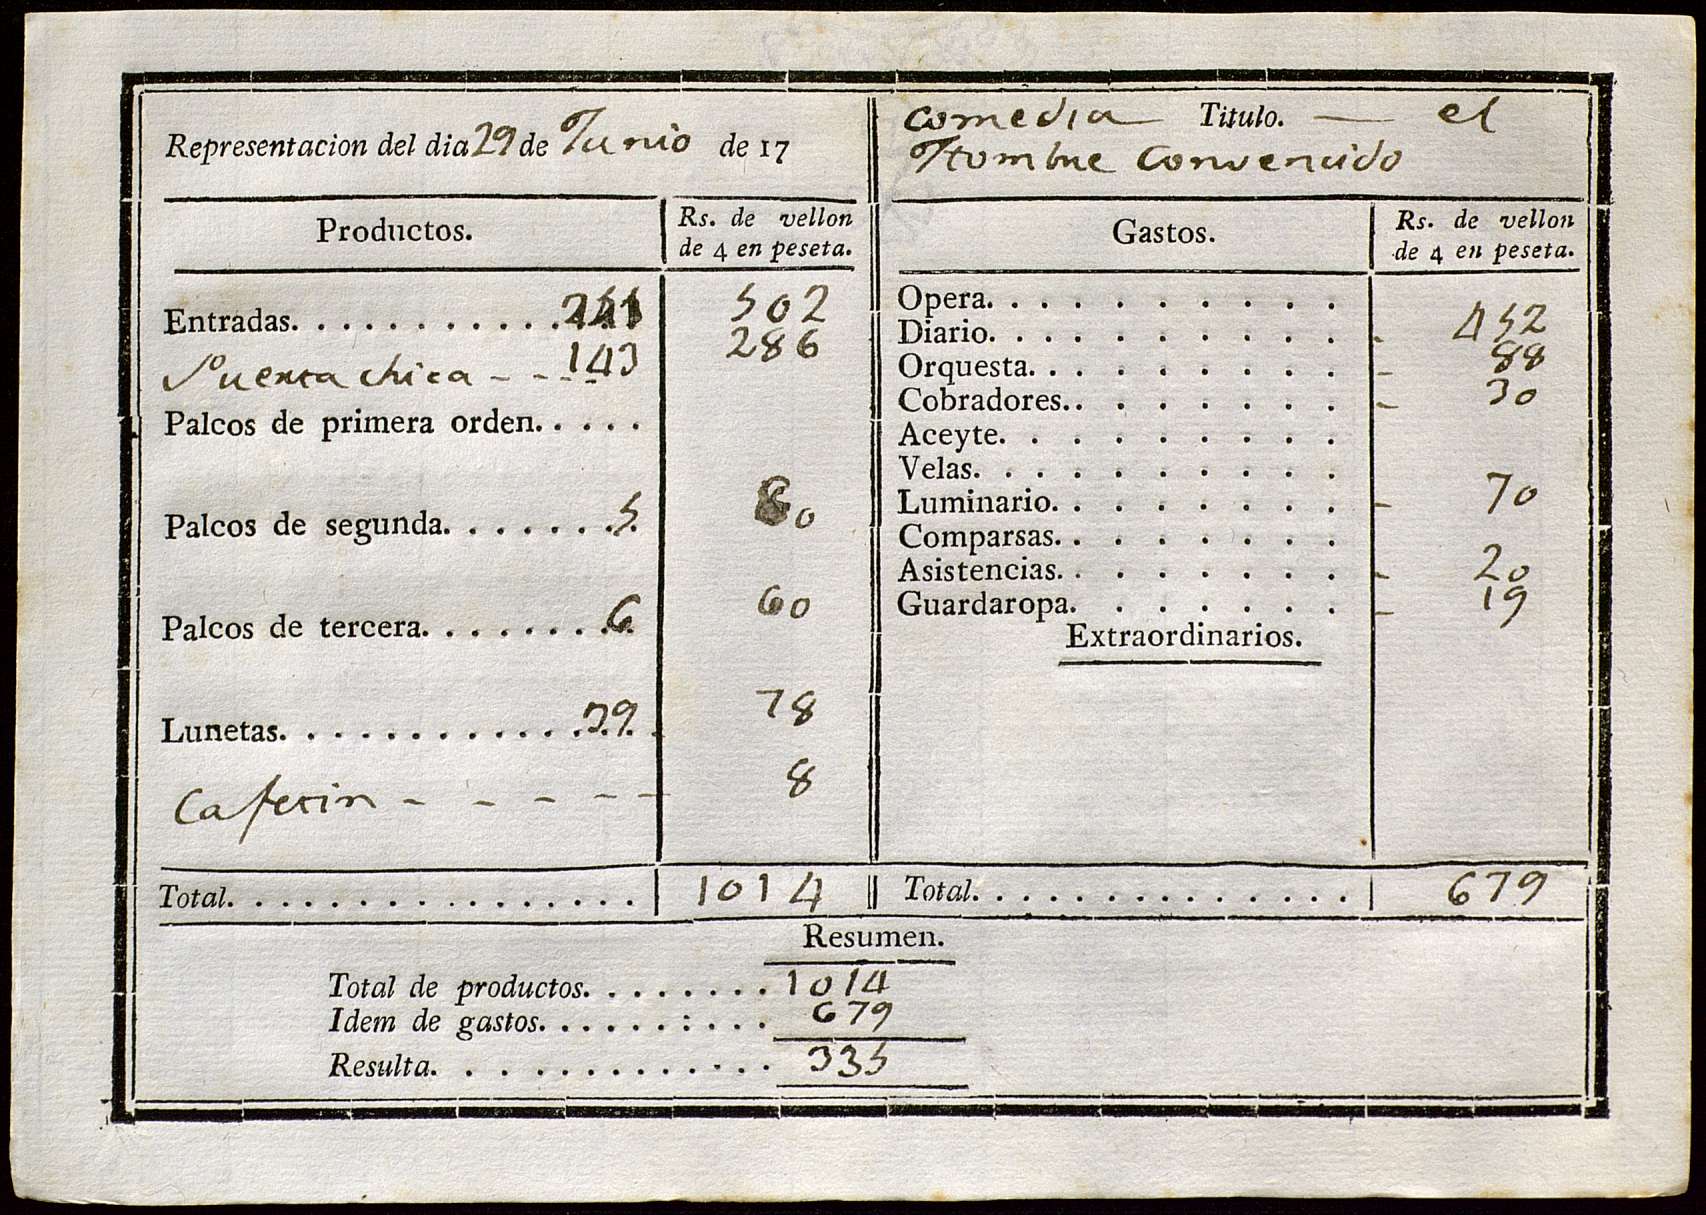 Representacion del dia 29 de Junio de 17
Comedia Titulo. — el
Hombre Convencido
Productos.
Rs. de vellon
de 4 en peseta.
Entradas. . . . . . . . . . . . 251 502
Puerta chica - - - - 143 286
Palcos de primera orden. . . . .
Palcos de segunda. . . . . . . 5 80
Palcos de tercera. . . . . . . . 6 60
Lunetas. . . . . . . . . . . . . 39 78
Cafetin - - - - - 8
Total. . . . . . . . . . . . . . . . 1014
Gastos.
Rs. de vellon
de 4 en peseta.
Opera. . . . . . . . . .
Diario. . . . . . . . . . - 452
Orquesta. . . . . . . . . - 88
Cobradores. . . . . . . . - 30
Aceyte. . . . . . . . .
Velas. . . . . . . . . .
Luminario. . . . . . . . - 70
Comparsas. . . . . . . .
Asistencias. . . . . . . . - 20
Guardaropa. . . . . . . - 19
Extraordinarios.
Total. . . . . . . . . . . . . . . 679
Resumen.
Total de productos. . . . . . . . 1014
Idem de gastos. . . . . . : . . . 679
Resulta. . . . . . . . . . . . . 335